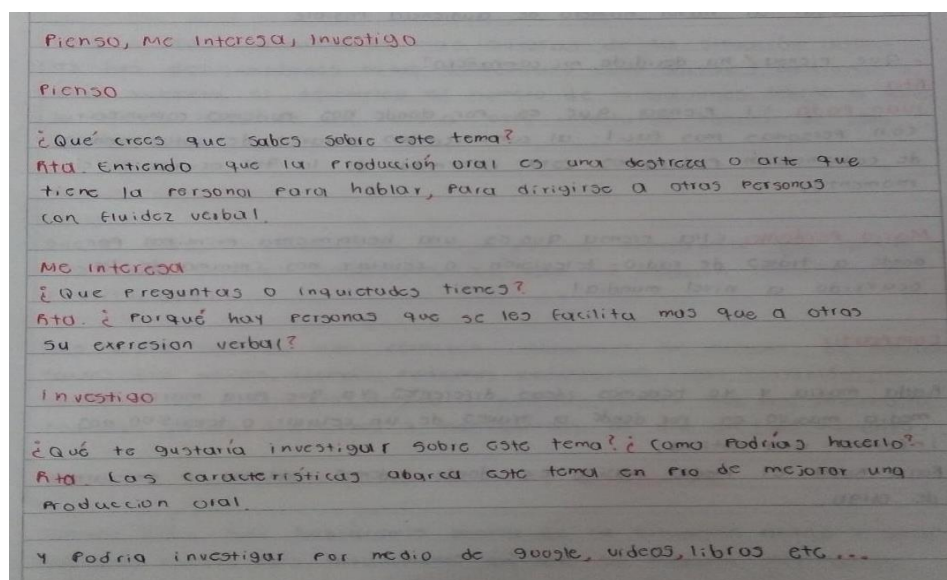 Pienso, Me Interesa, Investigo
Pienso
¿Qué crees que sabes sobre este tema?
Rta. Entiendo que la producción oral es una destreza o arte que
tiene la persona para hablar, para dirigirse a otras personas
con fluidez verbal.
Me interesa
¿Que preguntas o inquietudes tienes?
Rta. ¿Porqué hay personas que se les facilita mas que a otras
su expresion verbal?
Investigo
¿Qué te gustaría investigar sobre este tema? ¿como Podrías hacerlo?
Rta. Las características abarca este tema en pro de mejorar una
Produccion oral.
y Podria investigar por medio de google, videos, libros etc...